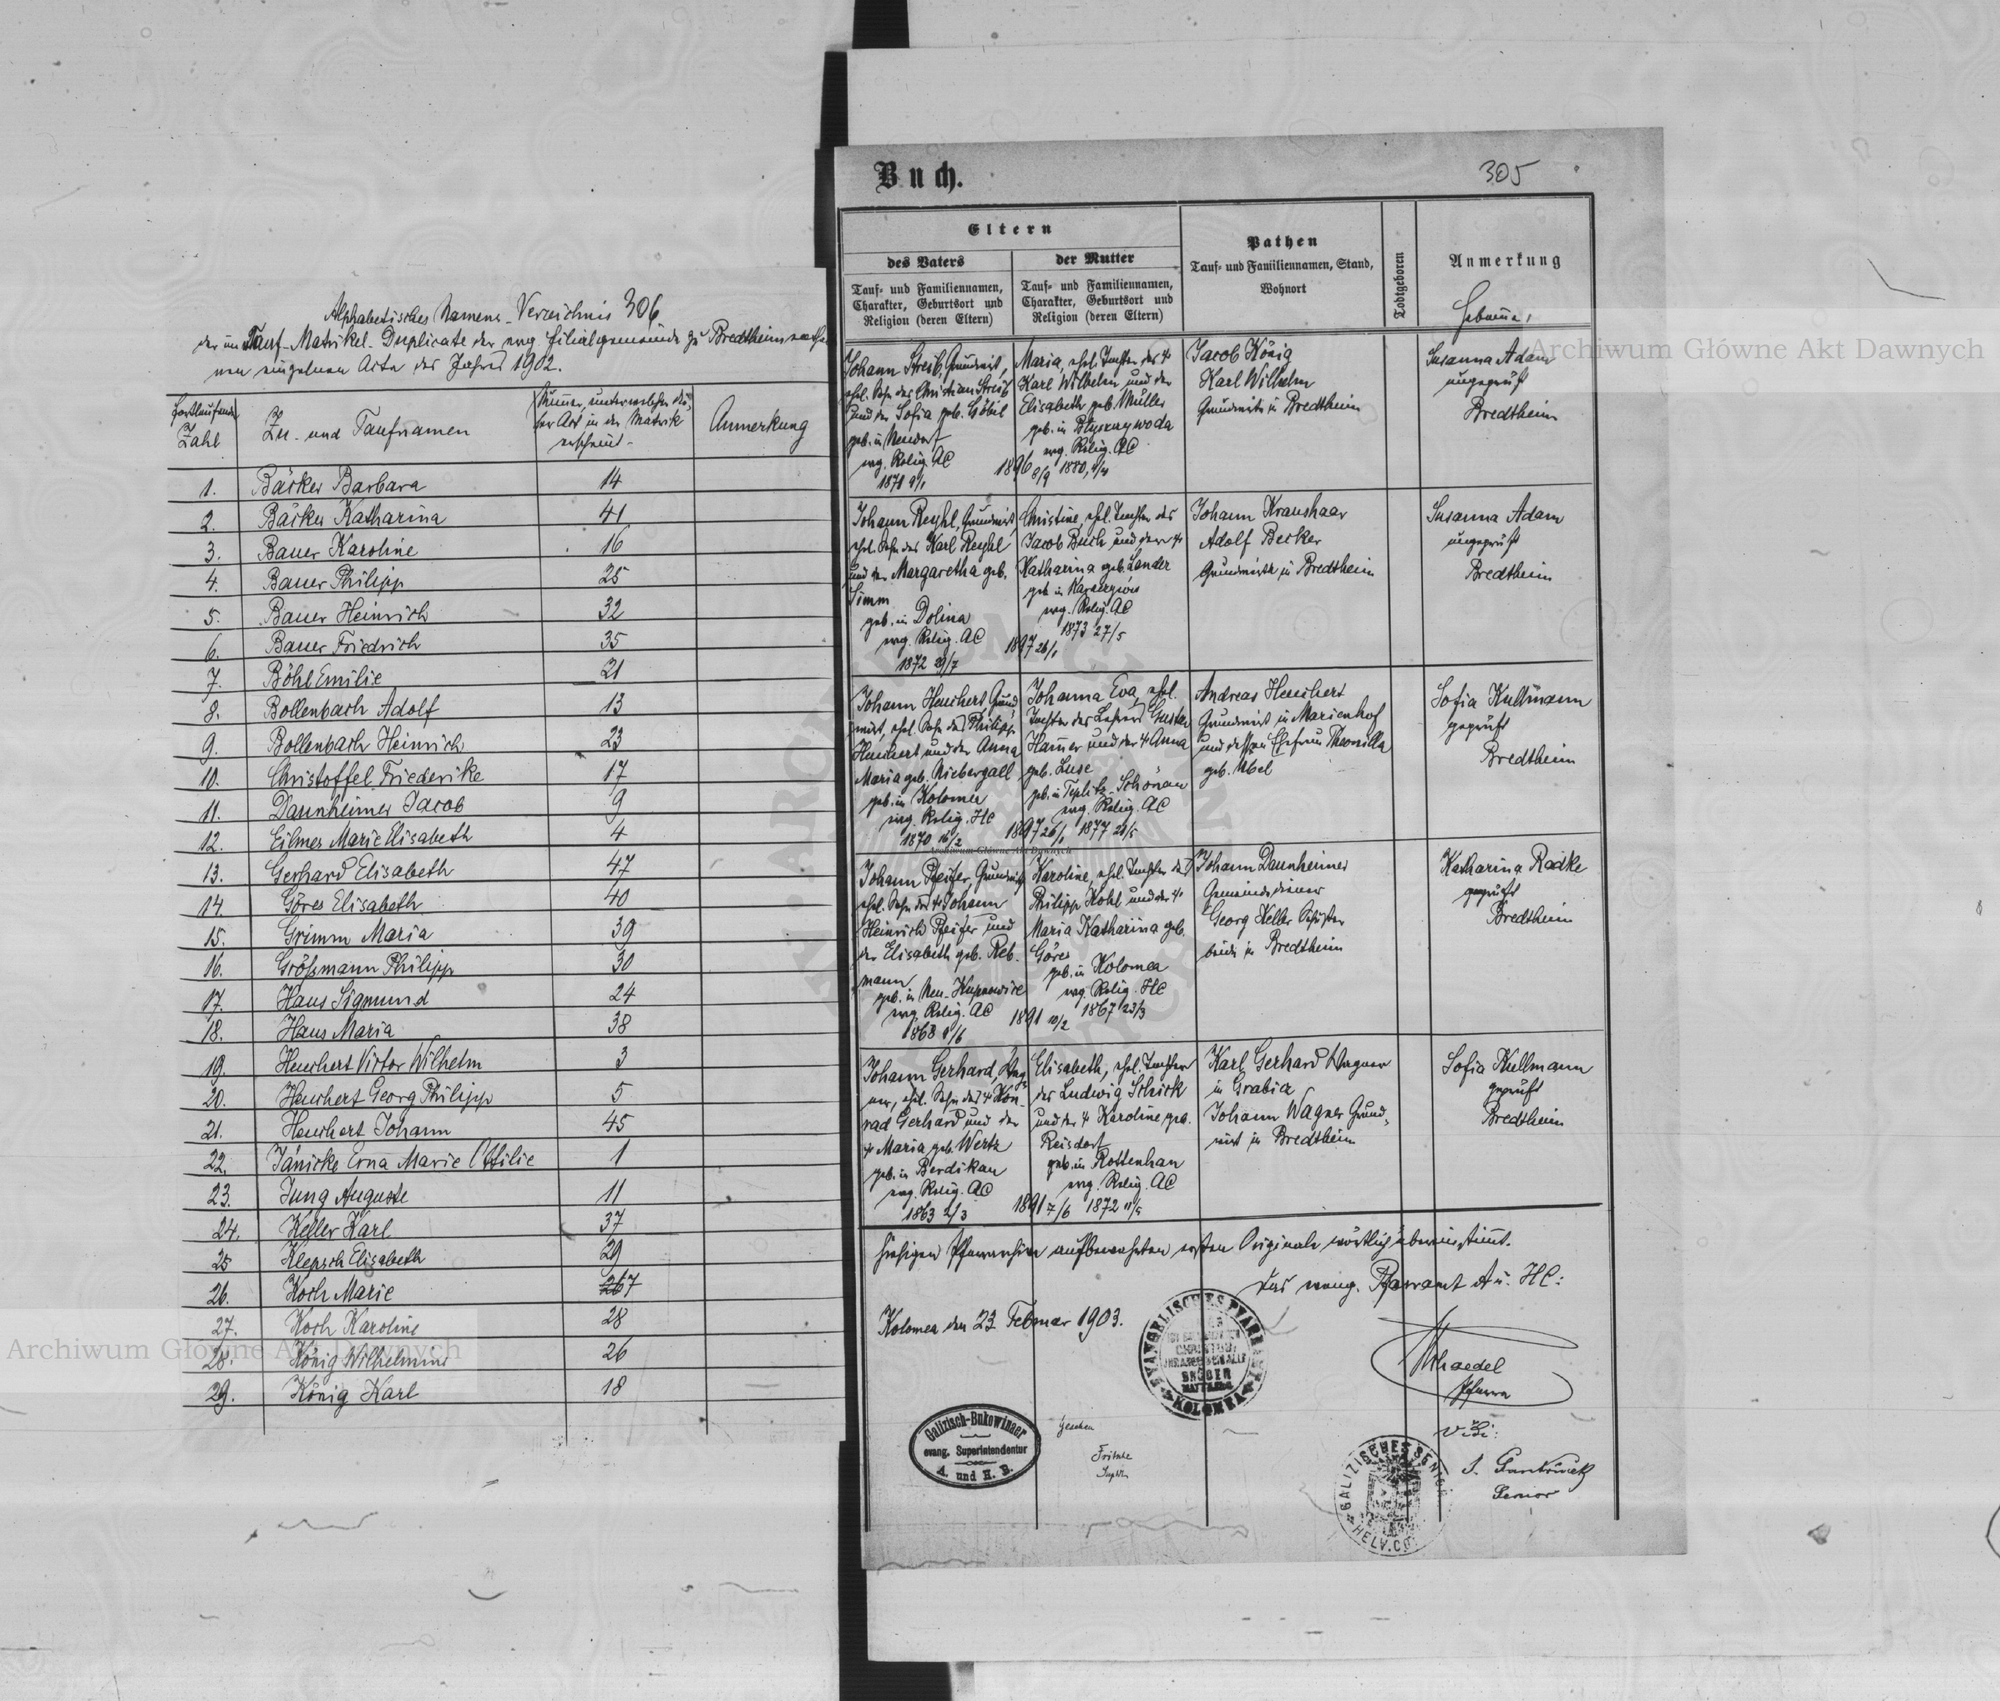 Alphabetisches Namens-Verzeichnis 306
der im Tauf-Matrikel-Duplicate der evg. Filialgemeinde zu Bredtheim
einzelnen Acte des Jahres 1902.
Fortlaufende Zahl
Zu- und Taufnamen
Nummer, unter welcher die-
ser Act in der Matrik
erscheint
Anmerkung
1. Bäcker Barbara 14
2. Bäcker Katharina 41
3. Bauer Karoline 16
4. Bauer Philipp 25
5. Bauer Heinrich 32
6. Bauer Friedrich 35
7. Böhl Emilie 21
8. Bollenbach Adolf 13
9. Bollenbach Heinrich 23
10. Christoffel Friederike 17
11. Dannheimer Jacob 9
12. Eilmes Marie Elisabeth 4
13. Gerhard Elisabeth 47
14. Göres Elisabeth 40
15. Grimm Maria 39
16. Größmann Philipp 30
17. Haus Sigmund 24
18. Haus Maria 38
19. Heuchert Victor Wilhelm 3
20. Heuchert Georg Philipp 5
21. Heuchert Johann 45
22. Jänicke Erna Marie Ottilie 1
23. Jung Auguste 11
24. Keller Karl 37
25 Klepsch Elisabeth 29
26. Koch Marie 7
27. Koch Karoline 28
28. König Wilhelmine 26
29. König Karl 18
Buch.
305
Eltern
des Vaters
Tauf- und Familiennamen,
Charakter, Geburtsort und
Religion (deren Eltern)
der Mutter
Tauf- und Familiennamen,
Charakter, Geburtsort und
Religion (deren Eltern)
Pathen
Tauf- und Familiennamen, Stand,
Wohnort
Todtgeboren
Anmerkung
Hebamme,
Johann Streib, Grundwirt,
ehel. Sohn des Christian Streib
und der Sofia geb. Göbel
geb. in Neudorf
evg. Relig. AC
1871 9/1
Maria, ehel. Tochter des +
Karl Wilhelm und der
Elisabeth geb. Müller
geb. in
evg. Relig. AC
1896 8/9 1880,
Jacob König
Karl Wilhelm
Grundwirte in Bredtheim
Susanna Adam
ungeprüft
Bredtheim
Johann Reyhl, Grundwirt,
ehel. Sohn des Karl Reyhl
und der Margaretha geb.
Simm
geb. in Dolina
evg. Relig. AC
1872 29/7
Christine, ehel. Tochter des
Jacob Buch und der +
Katharina geb. Lander
geb. in
evg. Relig. AC
1873 27/5
1897 26/1
Johann Kraushaar
Adolf Becker
Grundwirte in Bredtheim
Susanna Adam
ungeprüft
Bredtheim
Johann Heuchert Grund-
wirt, ehel. Sohn des Philipp
Heuchert und der Anna
Maria geb. Niebergall
geb. in Kolomea
evg. Relig. HC
1870 16/2
Johanna Eva, ehel.
Tochter des Lehrers Gustav
Hamer und der + Anna
geb. Luse
geb. in Teplitz-Schönau
evg. Relig. AC
1897 26/1 1877 21/5
Andreas Heuchert
Grundwirt in Marienhof
und dessen Ehefrau
geb. Ubel
Sofia Kullmann
geprüft
Bredtheim
Johann Pfeifer, Grundwirt
ehel. Sohn des + Johann
Heinrich Pfeifer und
der Elisabeth geb. Reb-
mann
geb. in Neu-
evg. Relig. AC
1868 9/6
Karoline, ehel. Tochter des
Philipp Kohl und der +
Maria Katharina geb.
Göres
geb. in Kolomea
evg. Relig. HC
1891 10/2 1867 23/3
Johann Dannheimer
Gemeindediener
Georg Keller Schuster
beide in Bredtheim
Katharina Radke
geprüft
Bredtheim
Johann Gerhard, Wag-
ner, ehel. Sohn des + Kon-
rad Gerhard und der
+ Maria geb. Wertz
geb. in Berdikau
evg. Relig. AC
1863 2/3
Elisabeth, ehel. Tochter
des Ludwig Schick
und der + Karoline geb.
Reisdorf
geb. in Rottenhan
evg. Relig. AC
1891 7/6 1872 11/5
Karl Gerhard Wagner
in Grabia
Johann Wagner Grund-
wirt in Bredtheim
Sofia Kullmann
geprüft
Bredtheim
hiesigen Pfarrarchive aufbewahrten ersten Originale wörtlich übereinstimmt.
Das evang. Pfarramt A u. HC:
Kolomea den 23. Februar 1903.
EVANGELISCHES PFARRAMT
KOLOMEA
BRÜDER
Pfarrer
Galizisch-Bukowinaer
evang. Superintendentur
A. und H. B.
Gesehen
Fritsche
Suptdt.
vidi:
Senior
GALIZISCHES SENIORAT
HELV. CO.
Archiwum Główne Akt Dawnych
Archiwum Główne Akt Dawnych
Archiwum Główne Akt Dawnych